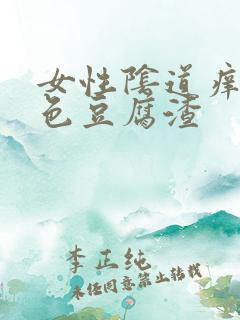 女性陰道癢
色豆腐渣
李正纯
未经同意禁止转载